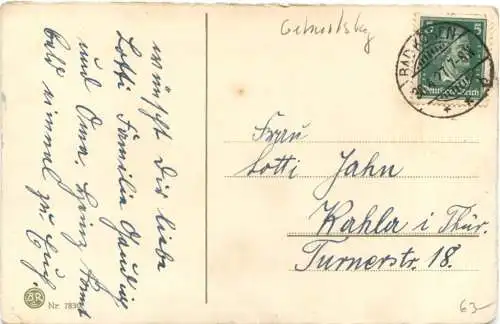 Geburtstag
wünscht Dir liebe
Lotti Familie
und Oma. Heinz kommt
bald einmal zu Euch.
5 5
BAD KÖSEN
Deutsches Reich
Frau
Lotti Jahn
Kahla i Thür.
Turnerstr. 18.
Nr. 7830
63-